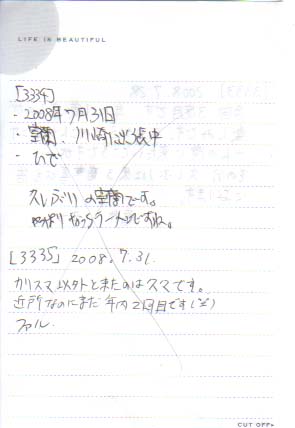 LIFE IS BEAUTIFUL
[3334]
・2008年7月31日
・空蘭、川崎に出張中
・ひで
久しぶりの空蘭です。
やっぱりなっちラートンですね。
[3335] 2008.7.31.
カリスマ以外と来たのはスマです。
近所なのにまだ年内2回目です(ﾟﾟ)
ファル.
CUT OFF▸